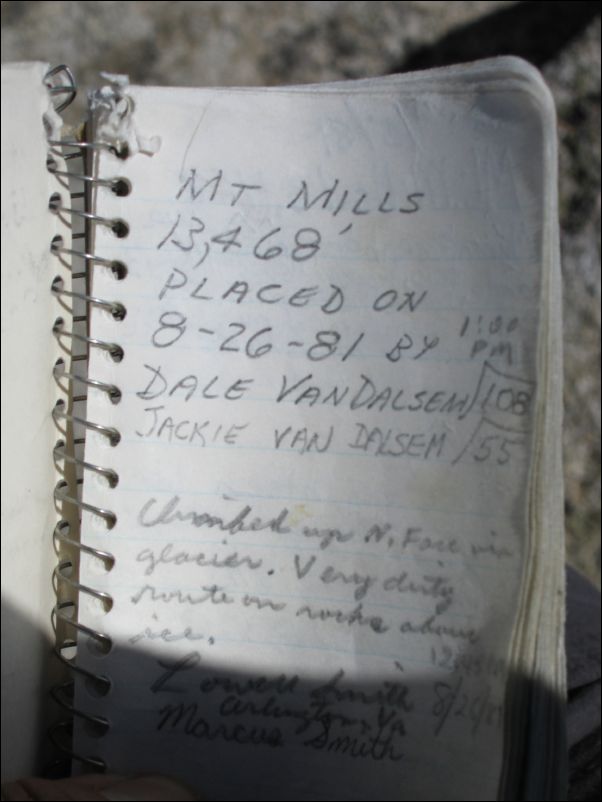 MT MILLS
13,468'
PLACED ON
8-26-81 BY 1:00 PM
DALE VANDALSEM /108
JACKIE VAN DALSEM /55
Climbed up N. Face via
glacier. Very dirty
route on rocks above
ice.
Lowell Smith
Arlington, Va
Marcus Smith